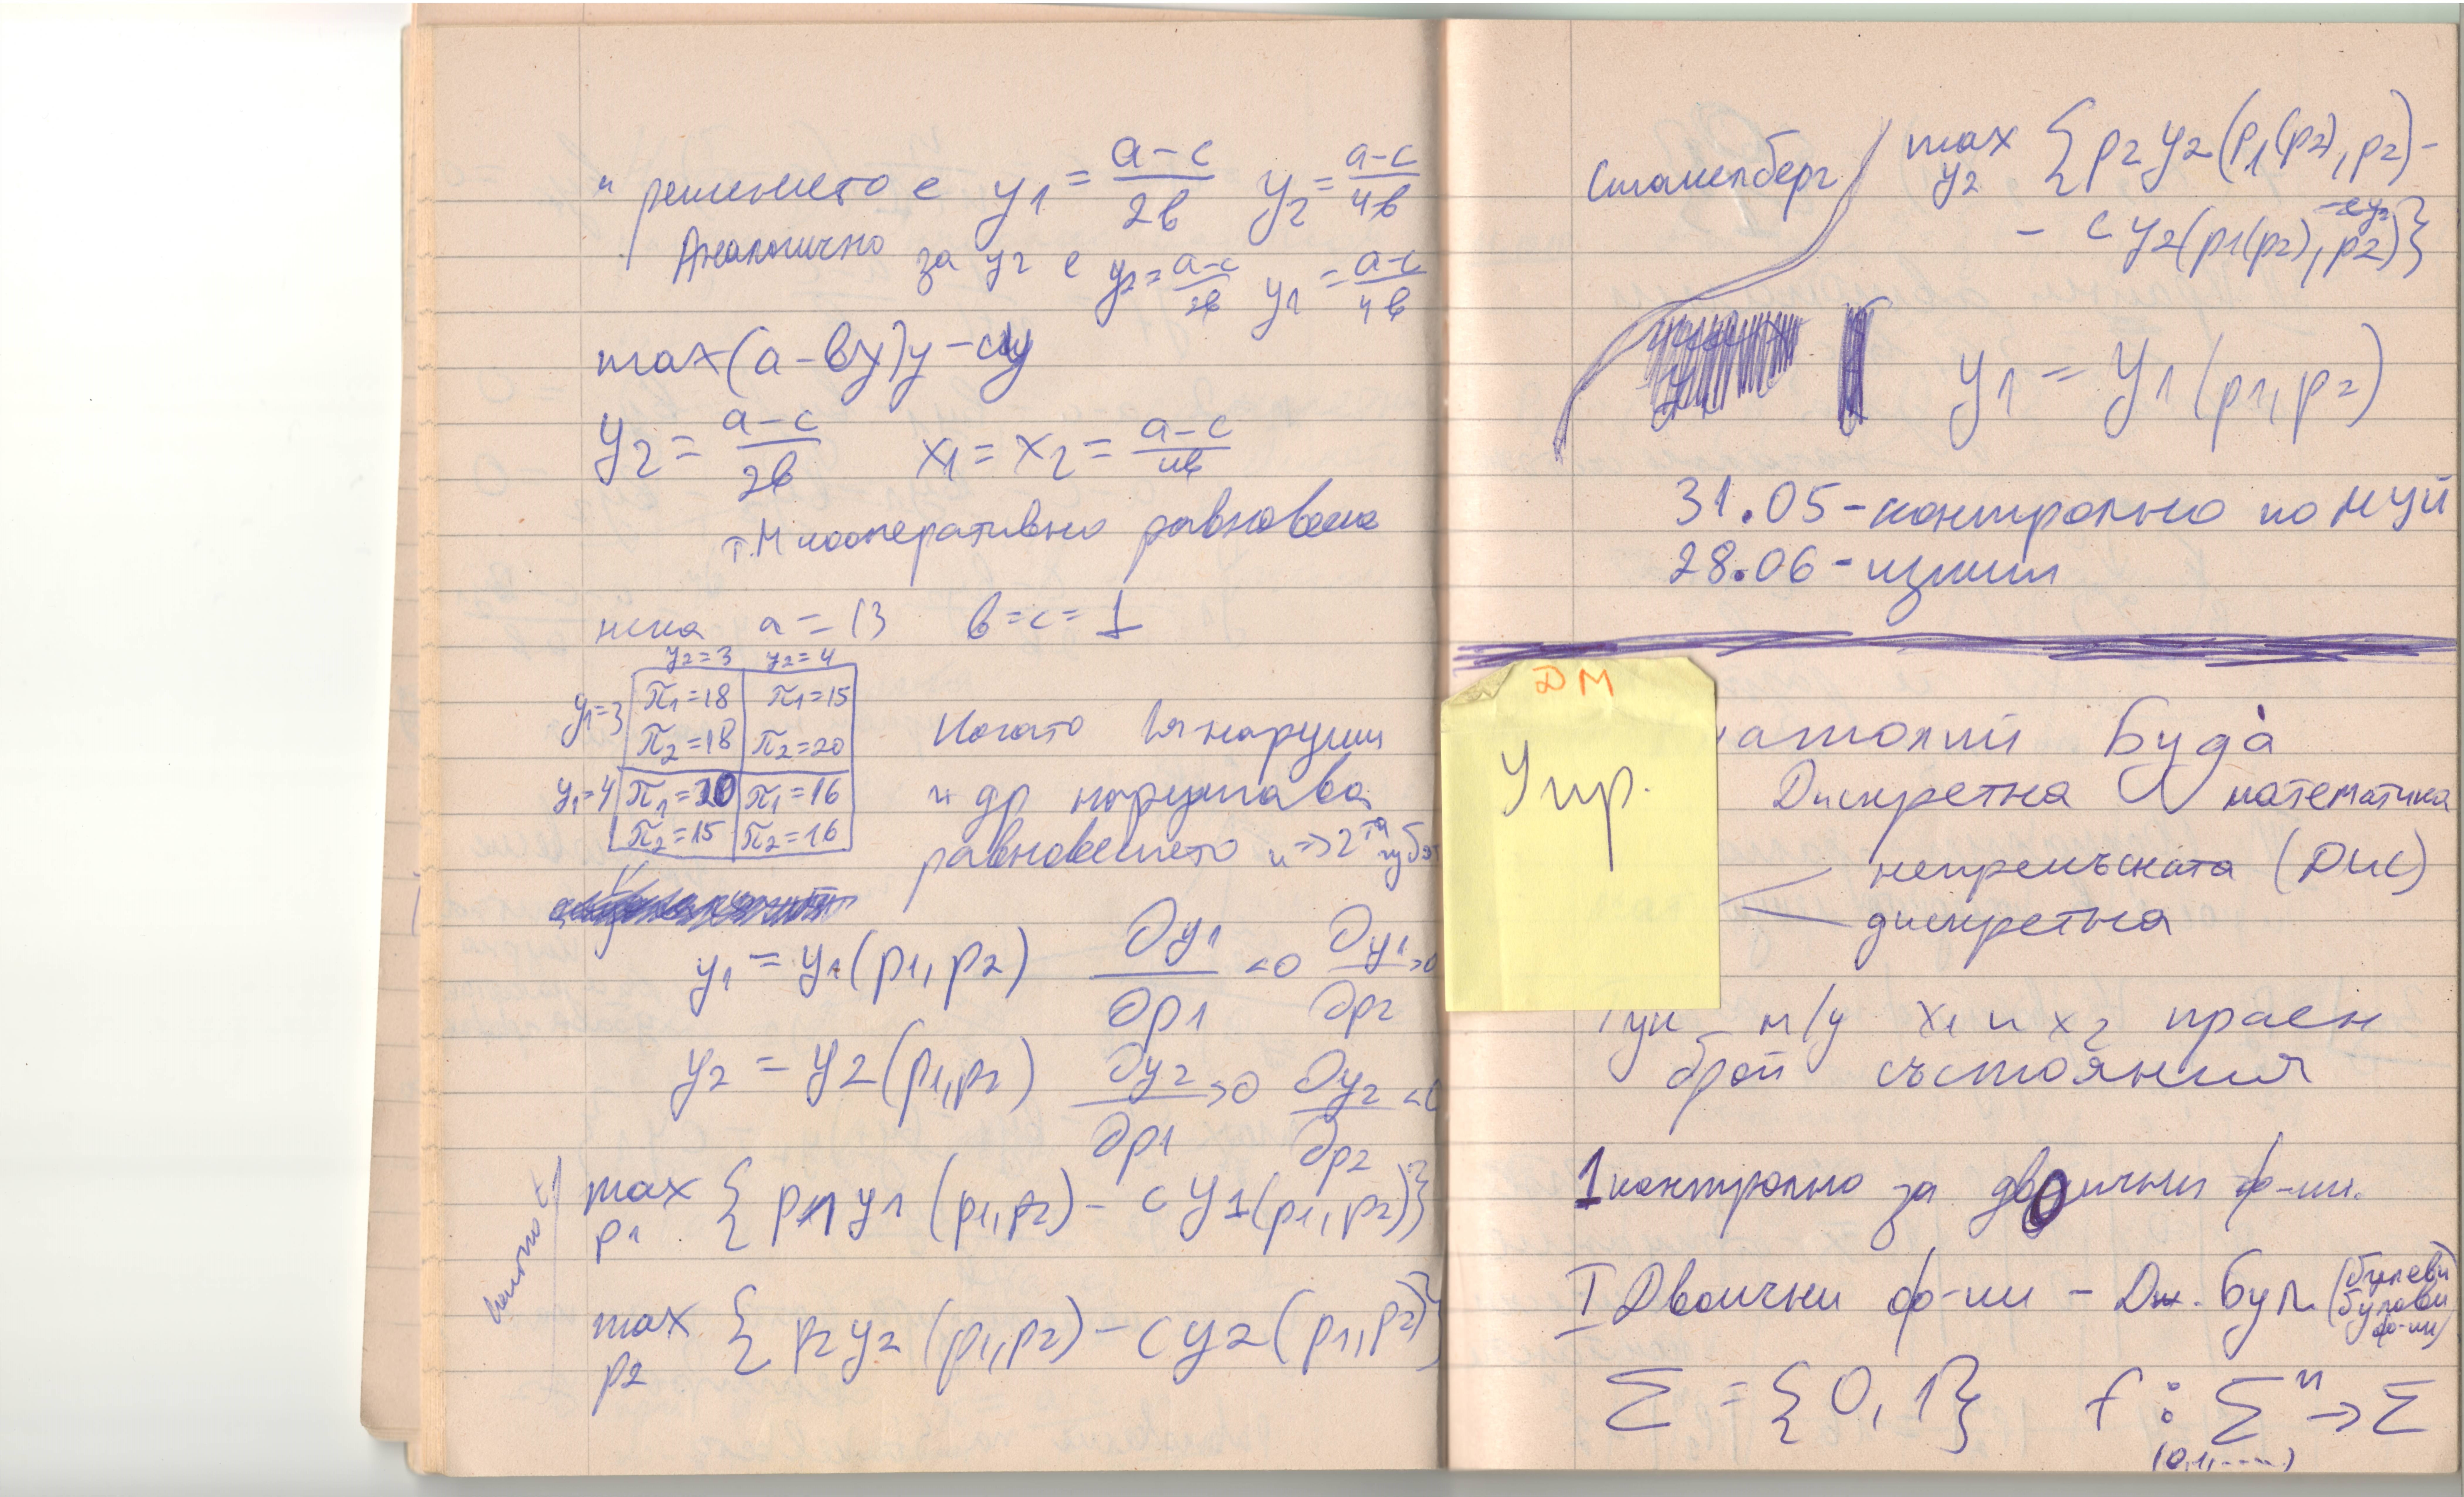 " решението е y1 = a-c/2b y2 = a-c/4b
Аналогично за y2 е y2 = a-c/2b y1 = a-c/4b
max(a-by)y-cy
y2 = a-c/2b x1 = x2 = a-c/4b
кооперативно равновесие
нека a = 13 b=c=1
y2=3 y2=4
y1=3 π1=18 π1=15
π2=18 π2=20
y1=4 π1=20 π1=16
π2=15 π2=16
Когато 1я наруши
и др нарушава
равновесието и => 2та губят
y1 = y1(p1,p2) ∂y1/∂p1 <0 ∂y1/∂p2 >0
y2 = y2(p1,p2) ∂y2/∂p1 >0 ∂y2/∂p2 <0
max p1 { p1y1(p1,p2) - cy1(p1,p2)}
max p2 { p2y2(p1,p2) - cy2(p1,p2)}
Стакелберг max y2 { p2y2(p1(p2),p2)-
- cy2(p1(p2),p2)}
y1 = y1(p1,p2)
31.05-контролно по
28.06-изпит
ДМ
Упр.
атолий Буда̀
Дискретна математика
непрекъсната (ДИС)
дискретна
Тук м/у x1 и x2 краен
брой състояния
1 контролно за двоични ф-ии.
I Двоични ф-ии - Дж. Бул (булеви
булови
ф-ии)
Σ = {0,1} f : Σⁿ → Σ
(0,1,....)